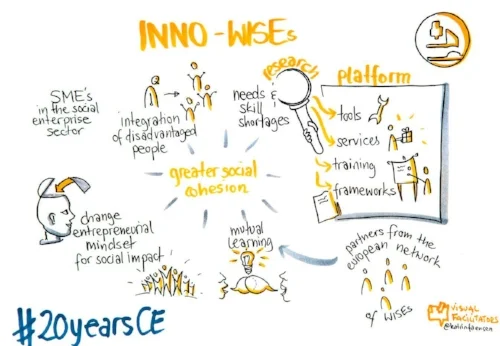 INNO-WISEs
SME's
in the social
enterprise
sector
integration
of disadvantaged
people
needs &
skill
shortages
research
platform
tools
services
training
frameworks
greater social
cohesion
change
entrepreneurial
mindset
for social impact
mutual
learning
partners from the
european network
of WISEs
#20yearsCE
VISUAL
FACILITATORS